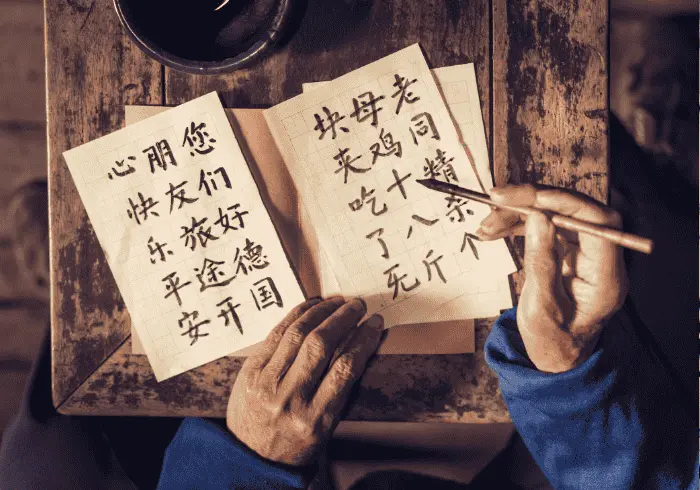 您们好德国
朋友旅途开
心快乐平安
老同精杀个
母鸡十八斤
块夹吃了死